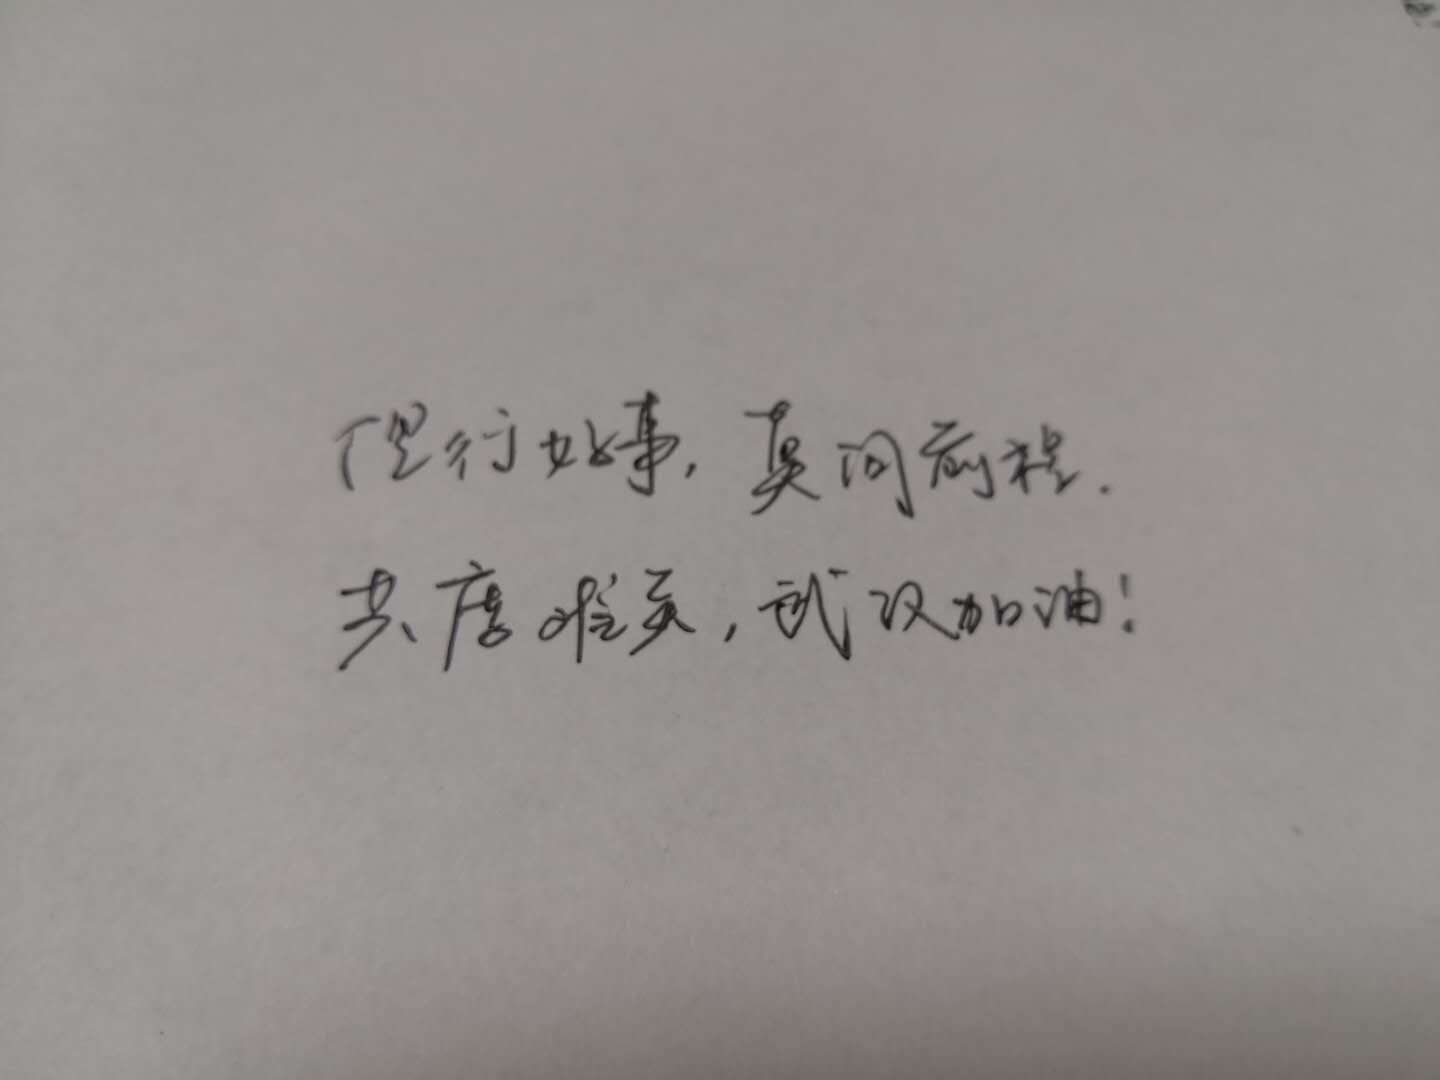 但行好事,莫问前程.
共度难关,武汉加油!